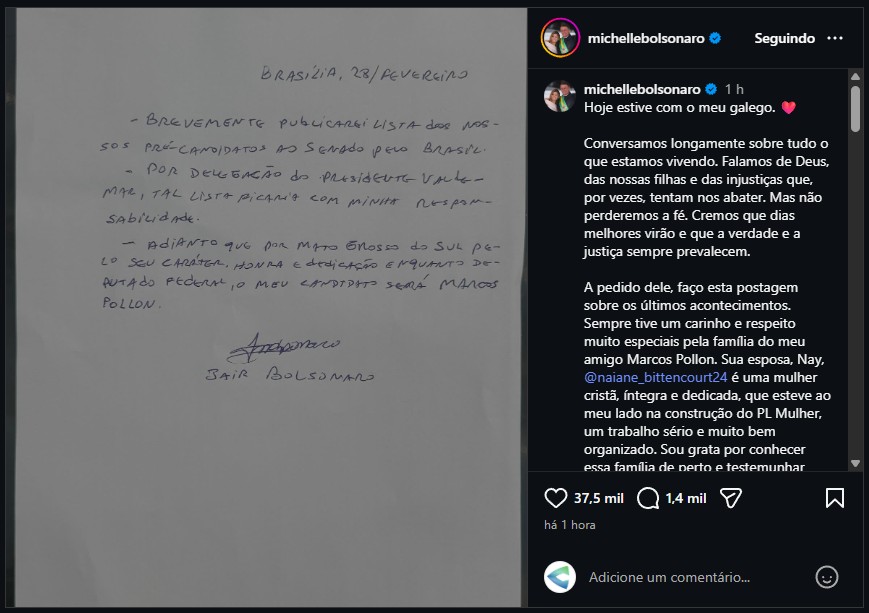 BRASÍLIA, 28/FEVEREIRO
- BREVEMENTE PUBLICAREI LISTA DOS NOS-
SOS PRÉ-CANDIDATOS AO SENADO PELO BRASIL.
- POR DELEGAÇÃO DO PRESIDENTE VALDE-
MAR, TAL LISTA FICARIA COM MINHA RESPON-
SABILIDADE.
- ADIANTO QUE POR MATO GROSSO DO SUL PE-
LO SEU CARÁTER, HONRA E DEDICAÇÃO ENQUANTO DE-
PUTADO FEDERAL, O MEU CANDIDATO SERÁ MARCOS
POLLON.
JAIR BOLSONARO
michellebolsonaro Seguindo
michellebolsonaro 1 h
Hoje estive com o meu galego. ❤️
Conversamos longamente sobre tudo o
que estamos vivendo. Falamos de Deus,
das nossas filhas e das injustiças que,
por vezes, tentam nos abater. Mas não
perderemos a fé. Cremos que dias
melhores virão e que a verdade e a
justiça sempre prevalecem.
A pedido dele, faço esta postagem
sobre os últimos acontecimentos.
Sempre tive um carinho e respeito
muito especiais pela família do meu
amigo Marcos Pollon. Sua esposa, Nay,
@naiane_bittencourt24 é uma mulher
cristã, íntegra e dedicada, que esteve ao
meu lado na construção do PL Mulher,
um trabalho sério e muito bem
organizado. Sou grata por conhecer
essa família de perto e testemunhar
37,5 mil 1,4 mil
há 1 hora
Adicione um comentário...